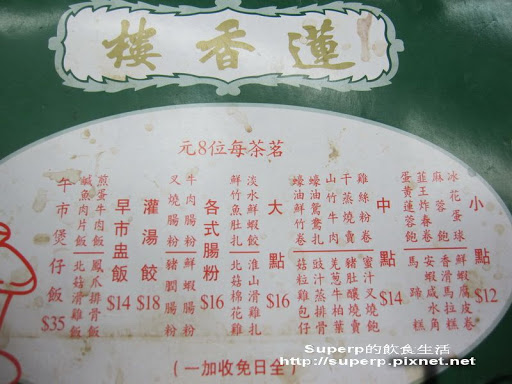 蓮香樓
茗茶每位8元
小點 $12
冰花蛋球
麻蓉飽
韮王炸春卷
蛋黃蓮蓉飽
鮮蝦腐皮卷
香滑馬拉糕
安蝦咸水角
馬蹄糕
中點 $14
雞絲粉卷
干蒸燒賣
山竹牛肉
蠔油鴛鴦扎
蠔油鮮竹卷
蜜汁叉燒飽
燒賣
羌蔥牛柏葉
豉汁蒸排骨
菇粒雞包仔
大點 $16
淡水鮮蝦餃
鮮竹魚肚扎
淮山滑雞扎
北菇棉花雞
各式腸粉 $16
牛肉腸粉
叉燒腸粉
鮮蝦腸粉
豬膶腸粉
灌湯餃 $18
早市盅飯 $14
煎蛋牛肉飯
鹹魚肉片飯
鳳爪排骨飯
北菇滑雞飯
午市煲仔飯 $35
(全日免收加一)
Superp的飲食生活
http://superp.pixnet.net